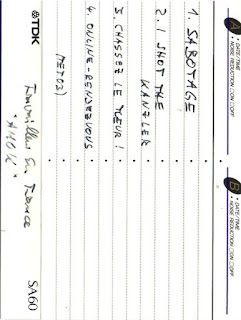 A
• DATE/TIME
• NOISE REDUCTION □ON □OFF
1. SABOTAGE
2. I SHOT THE
KANZLER
3. CHASSEZ LE TUEUR!
4. ONLINE-RENDEZVOUS
B
• DATE/TIME
• NOISE REDUCTION □ON □OFF
TDK
Travailleur En Trance
"AMOK"
SA60